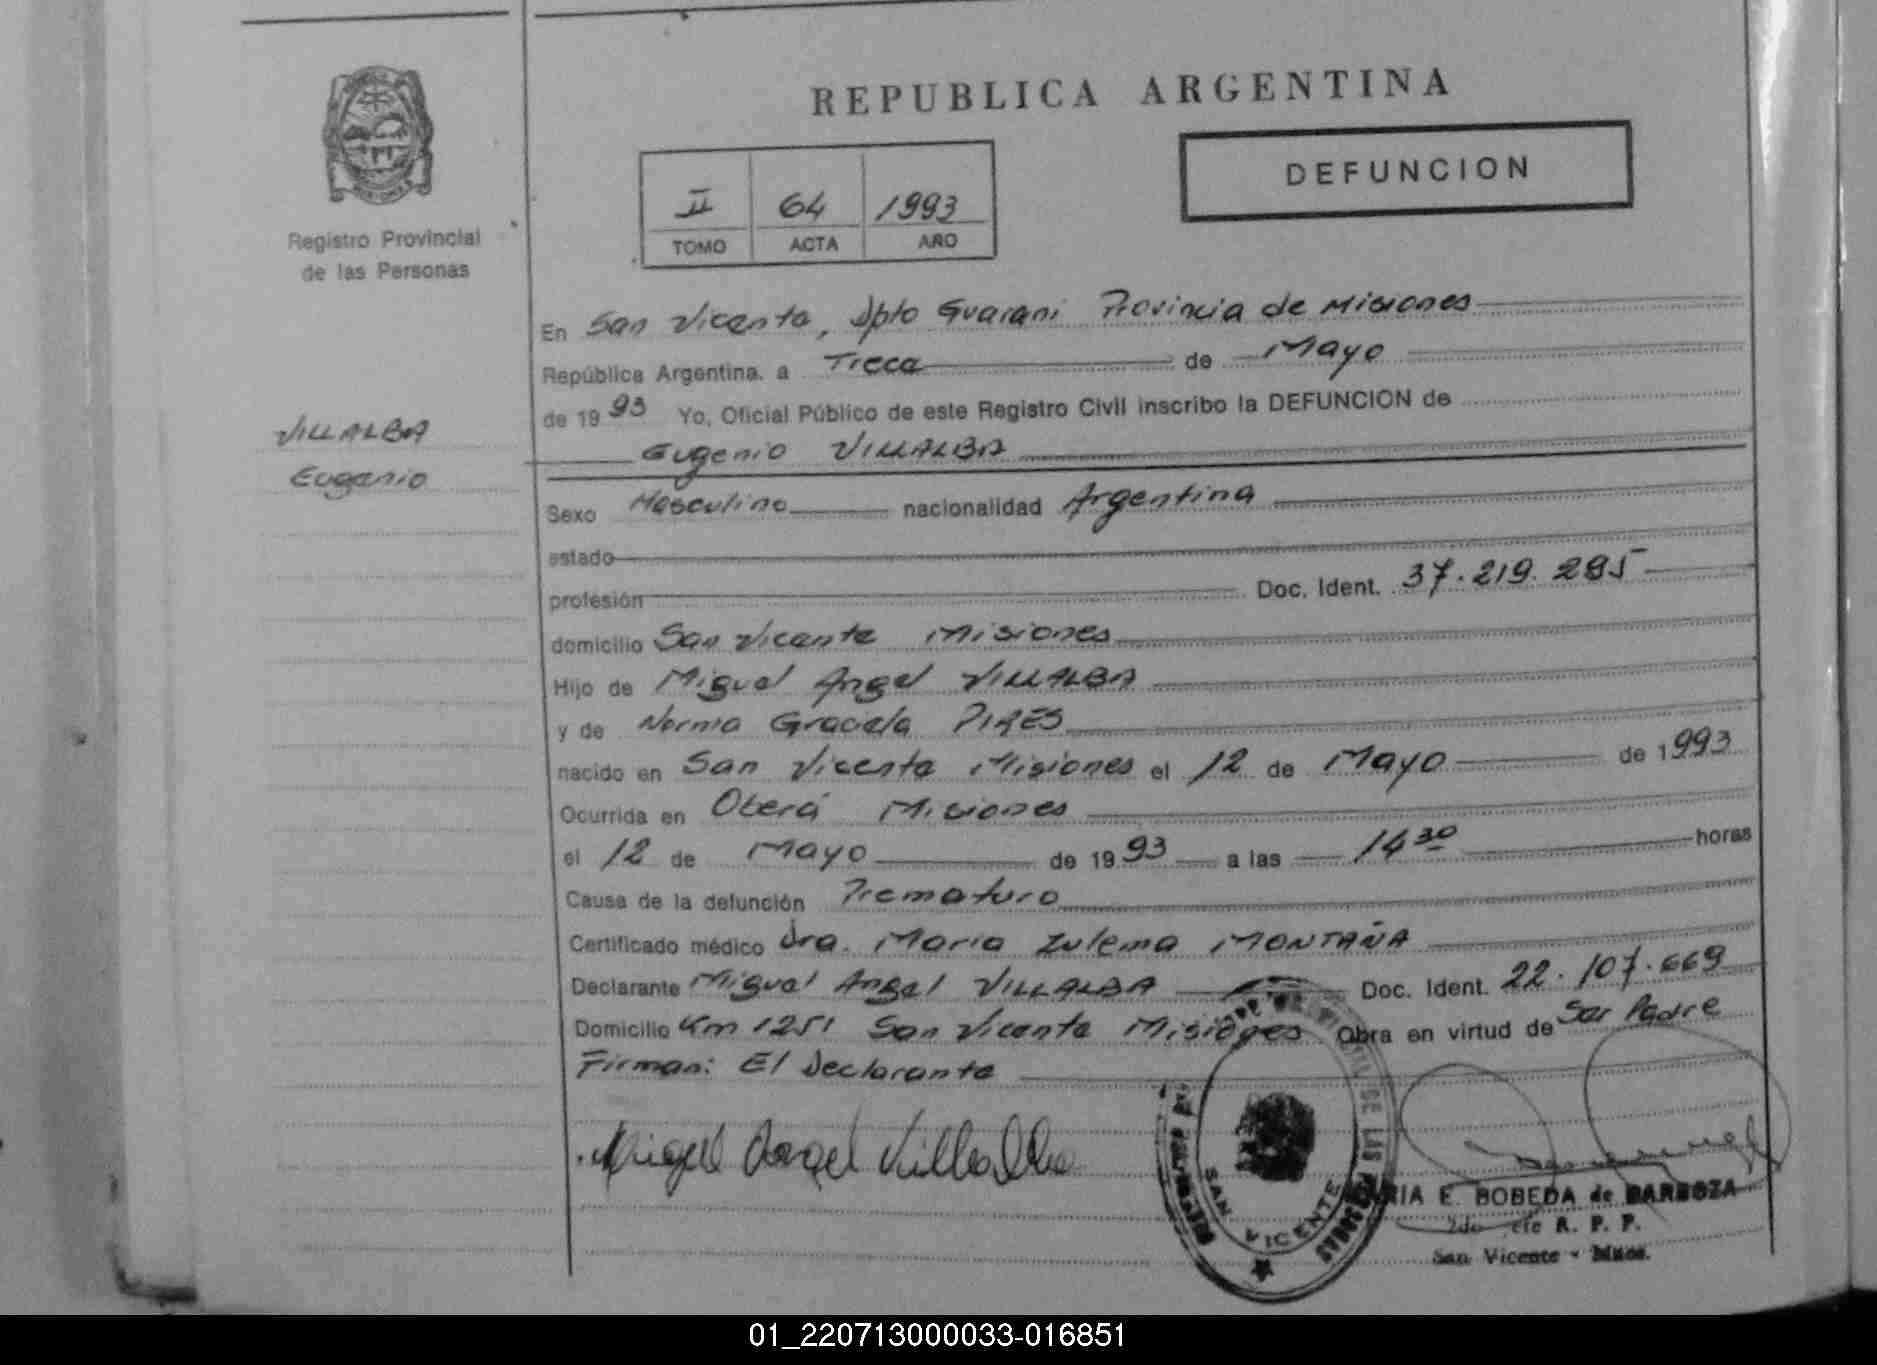 REPUBLICA ARGENTINA
DEFUNCION
II 64 1993
TOMO ACTA AÑO
Registro Provincial
de las Personas
VILLALBA
Eugenio
En San Vicente, Dpto Guarani Provincia de Misiones
República Argentina. a Trece de Mayo
de 1993 Yo, Oficial Público de este Registro Civil inscribo la DEFUNCION de
Eugenio VILLALBA
Sexo Masculino nacionalidad Argentina
estado
profesión Doc. Ident. 37.219.285
domicilio San Vicente Misiones
Hijo de Miguel Angel VILLALBA
y de Norma Graciela PIRES
nacido en San Vicente Misiones el 12 de Mayo de 1993
Ocurrida en Oberá Misiones
el 12 de Mayo de 1993 a las 14 30 horas
Causa de la defunción Prematuro
Certificado médico Dra. Maria Zulema MONTAÑA
Declarante Miguel Angel VILLALBA Doc. Ident. 22.107.669
Domicilio Km 1251 San Vicente Misiones Obra en virtud de Ser Padre
Firman: El Declarante
Miguel Angel Villalba
DE LAS PERSONAS
SAN VICENTE
RIA E. BOBEDA de BARBOZA
R. P. P.
San Vicente - Mnes.
01_220713000033-016851